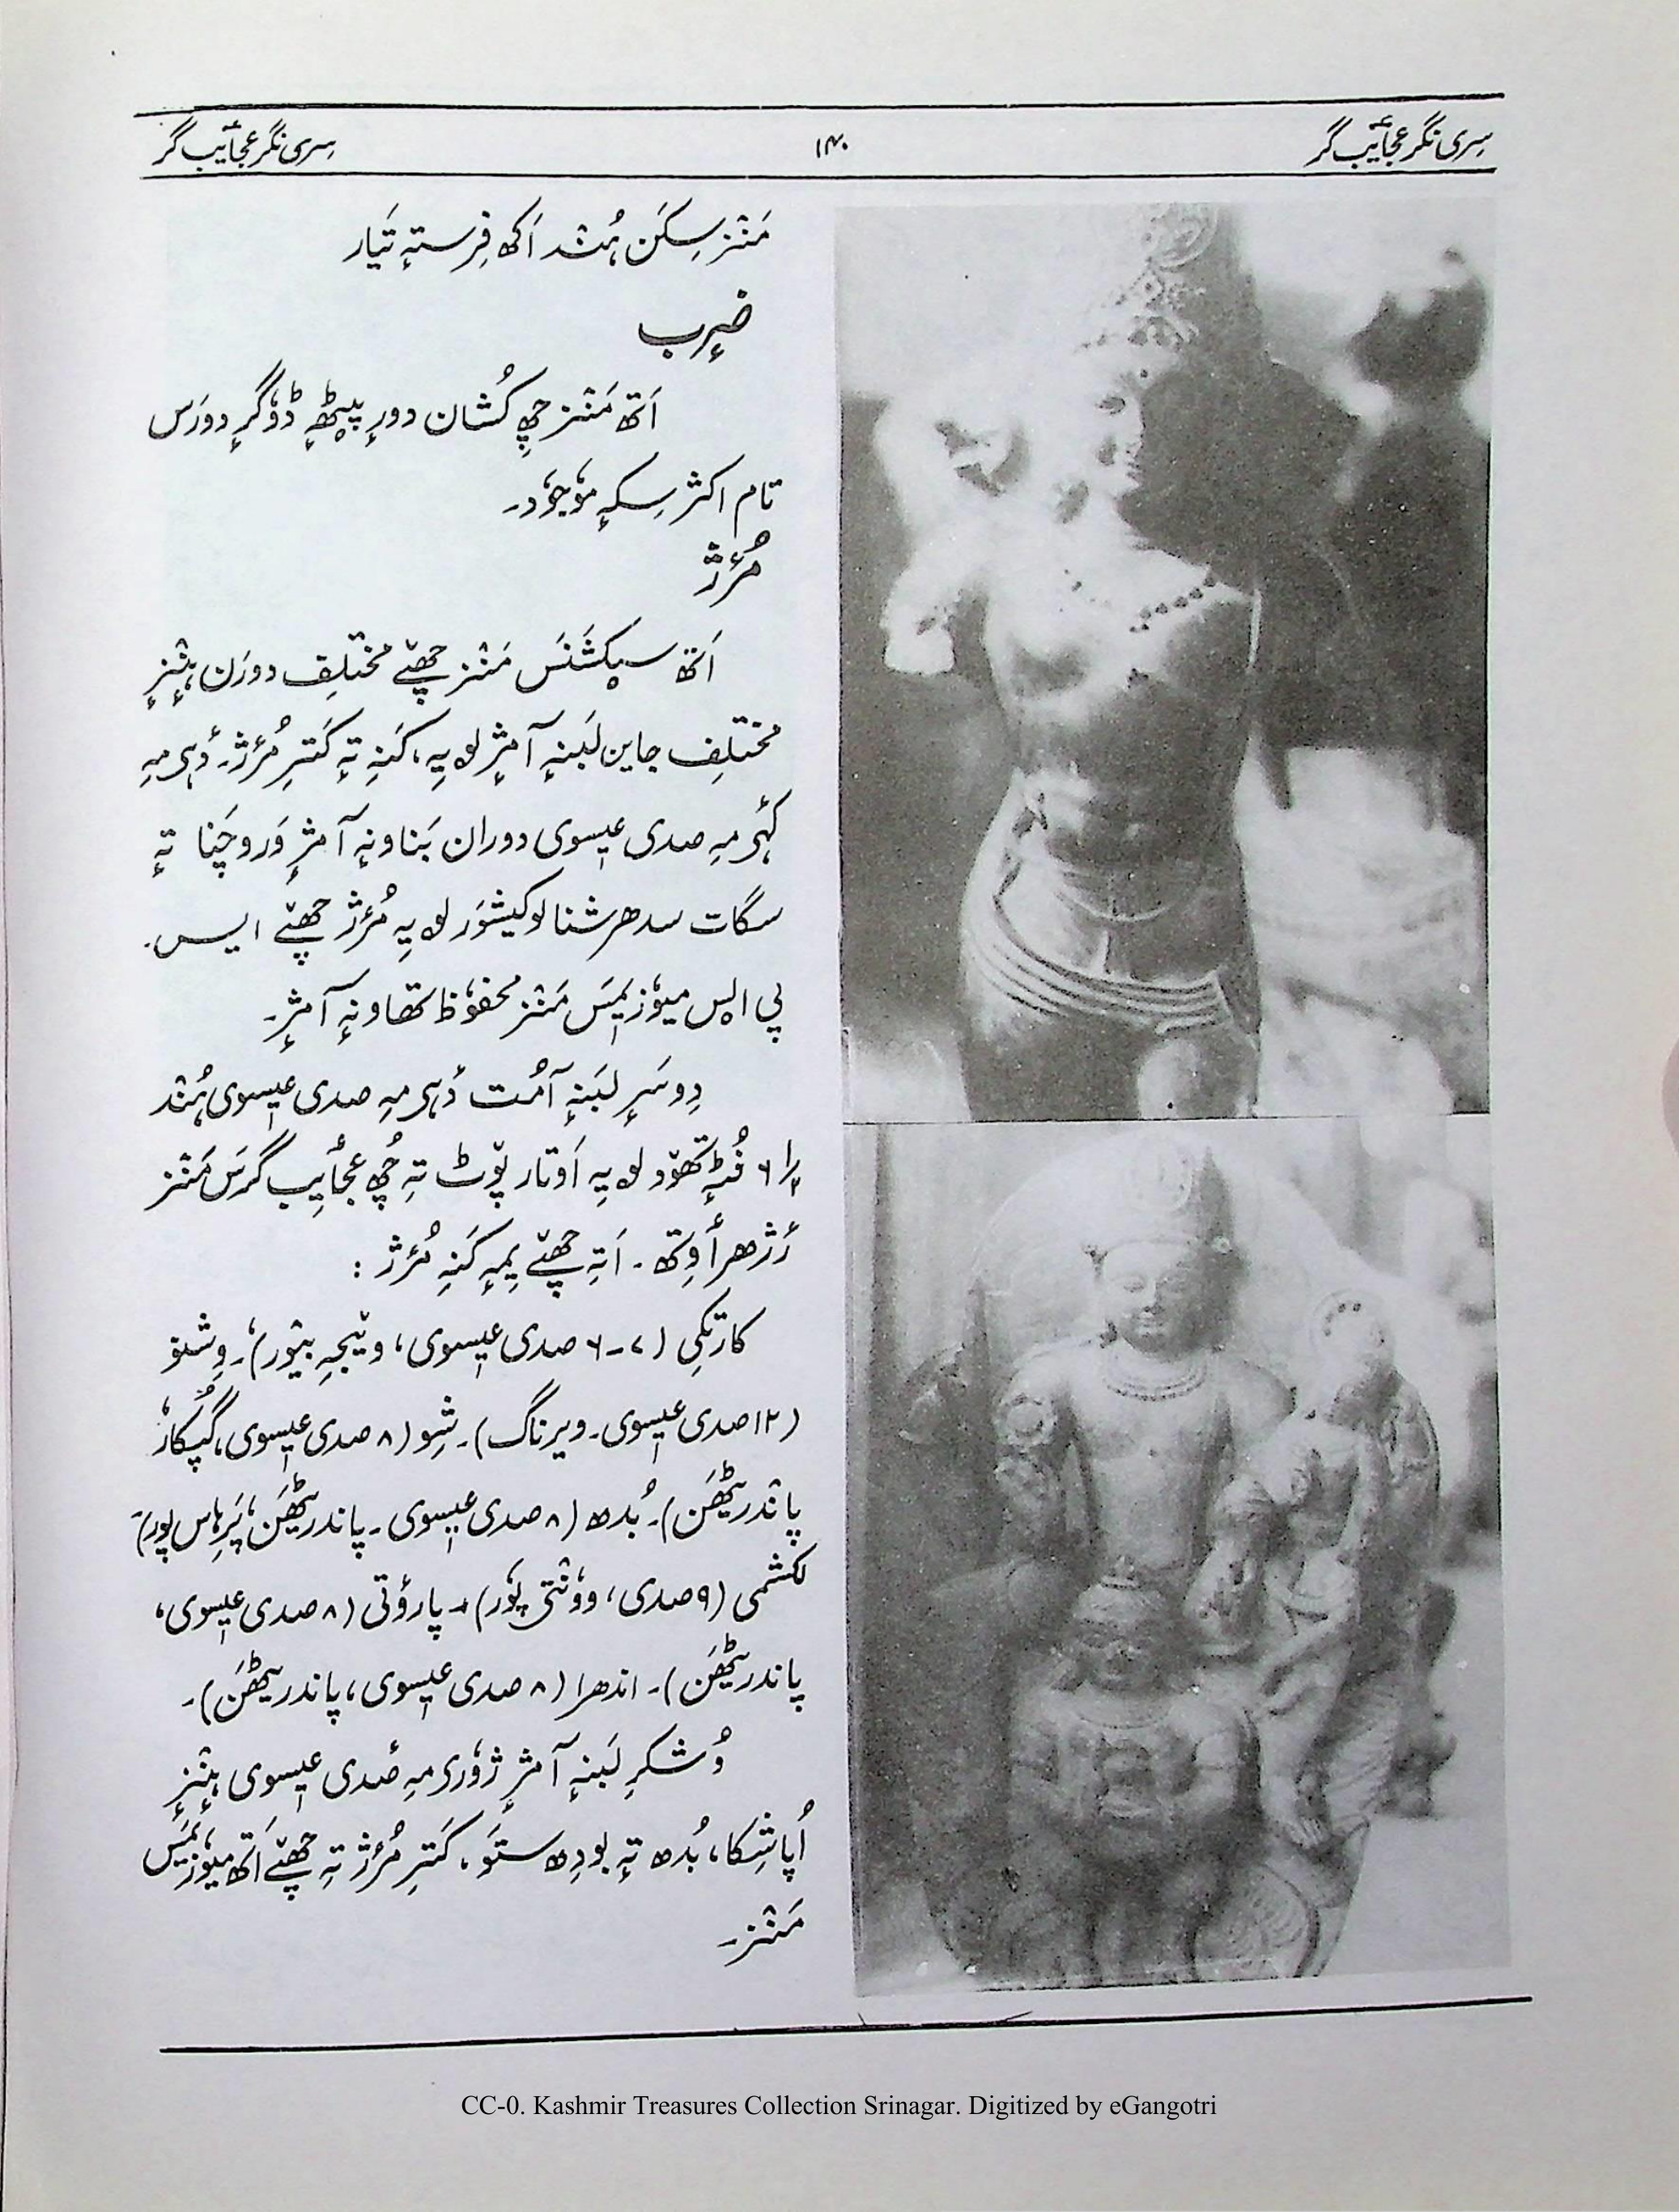 سِری نگر عجٲیب گر
۱۴۰
سِری نگر عجٲیب گر
مَنٛز سِکَن ہُنٛد اَکھ فِرستہٕ تَیار
ضرٕب
اَتھ مَنٛز چھِ کُشان دورٕ پیٖٹھہٕ ڈوگرٕ دورَس
تام اکثر سِکہٕ موٗجوٗد۔
مُژر
اَتھ سیکشَنَس مَنٛز چھےٚ مختلِف دورَن ہٕنٛزٕ
مختلِف جاین لَبنہٕ آمژٕ لۄیہِ، کَنہِ تہٕ کَترِ مُژر۔ دٔہِمہِ
کہِمہِ صدی عیٖسوی دوران بَناونہٕ آمژٕ وَروچَنا تہٕ
سگات سدھرشنا لوکیشوَر لۄیہِ مُژر چھےٚ ایس۔
پی ایس میوٗزیَمَس مَنٛز محفوٗظ تھاونہٕ آمژٕ۔
دِوسَرٕ لَبنہٕ آمُت دٔہِمہِ صدی عیٖسوی ہُنٛد
فُٹہٕ تھوٚد لۄیہِ اَوتار پوٚٹ تہِ چھُ عجٲیب گرَس مَنٛز
رٔژھرٲوِتھ۔ اَتہِ چھےٚ یِمہٕ کَنہِ مُژر :
کارتکی (۷-۶ صدی عیٖسوی، ویٚجہِ بیٛور)، وِشنو
(۱۲ صدی عیٖسوی۔ ویرناگ)۔ شِو (۸ صدی عیٖسوی، گُپکار،
پاندریٹھَن)۔ بُدھ (۸ صدی عیٖسوی۔ پاندریٹھَن، پَرِہاس پور)
لکشمی (۹ صدی، ووٗنتی پوٗر)۔ پاروٗتی (۸ صدی عیٖسوی،
پاندریٹھَن)۔ اندھرا (۸ صدی عیٖسوی، پاندریٹھَن)۔
وُشکرِ لَبنہٕ آمژٕ ژوٗرِمہِ صٔدی عیٖسوی ہٕنٛزٕ
اُپاشِکا، بُدھ تہٕ بودِھ ستَو، کَترِ مُژر تہِ چھےٚ اَتھ میوٗزیَمَس
مَنٛز۔
CC-0. Kashmir Treasures Collection Srinagar. Digitized by eGangotri